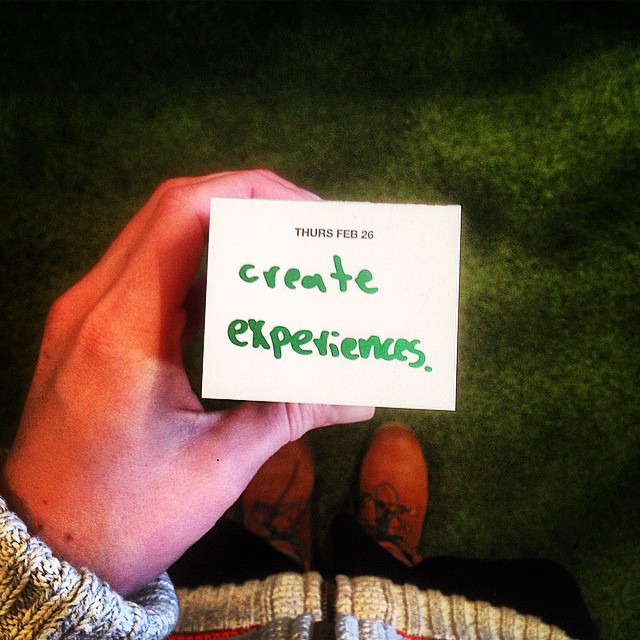 THURS FEB 26
create
experiences.